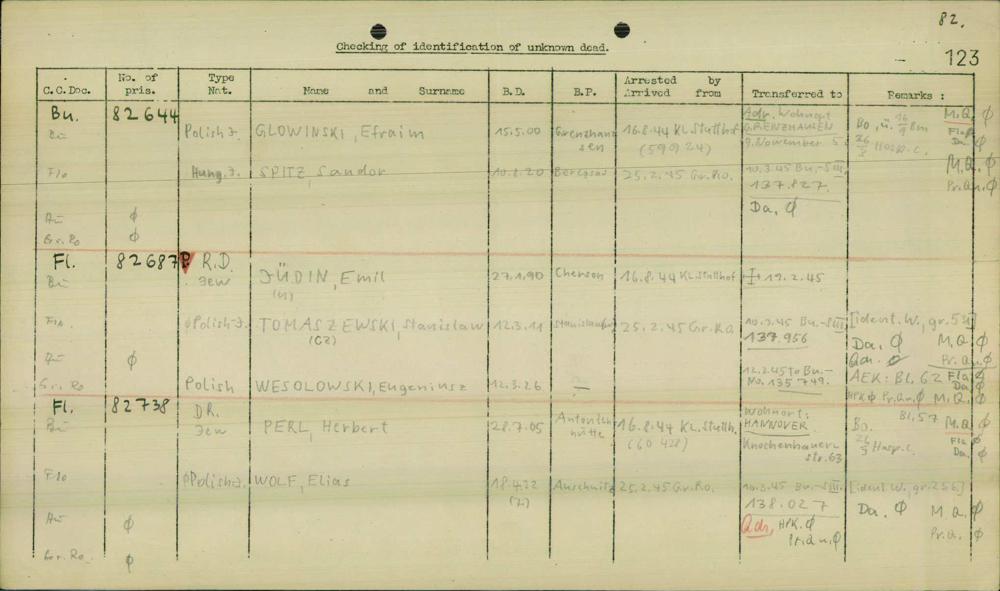 82.
123
Checking of identification of unknown dead.
C.C.Doc. No. of pris. Type Nat. Name and Surname B.D. B.P. Arrested by Arrived from Transferred to Remarks :
Bu. 82644 Adr. Wohnort M.Q. Ø
Bu Polish J. GLOWINSKI, Efraim 15.5.00 Grenzhausen 16.8.44 KL Stutthof (59024) GRENZHAUSEN 9. November 5. Bo., ü. 16/9 Bm 26/3 Hosp. c. Fla Ø Da. Ø
Flo Hung. J. SPITZ, Sandor 25.2.45 Gr.Ro. 10.3.45 Bu.-S III. 137.827. M.Q. Ø
Da. Ø Pr.Qu. Ø
Au Ø
Gr. Ro Ø
Fl. 82687 R.D.
Bu Jew JÜDIN, Emil 27.1.90 Cherson 16.8.44 KL. Stutthof 19.2.45
(U)
Polish-J. TOMASZEWSKI, Stanislaw 12.3.11 Stanislau 25.2.45 Gr.Ro 10.3.45 Bu.-S III [ident. W., gr. 54]
(CZ) 137.956 Da. Ø M.Q. Ø
Au Ø Qdr. Ø Pr.Qu. Ø
Gr. Ro Polish WESOLOWSKI, Eugeniusz 12.3.26 — 12.2.45 to Bu.- No. 135 749. AEK: Bl. 62 Fla Ø Da Ø
HPK Ø Pr.Qu. Ø M.Q. Ø
Fl. 82738 D.R. Wohnort: Bl. 57 M.Q. Ø
Bu Jew PERL, Herbert 28.7.05 Antonienhütte 16.8.44 KL. Stutth. (60 428) HANNOVER Knochenhauerstr. 63 Bo. 26/3 Hosp. c. Fla Ø Da. Ø
Flo Polish J. WOLF, Elias 18.4.22 Auschwitz 25.2.45 Gr.Ro. 10.3.45 Bu.-S III. [ident. W., gr. 256]
(7.) 138.027 Da. Ø M.Q. Ø
Au Ø Qdr. HPK. Ø Pr.Qu. Ø
Pr.Qu. Ø
Gr. Ro. Ø